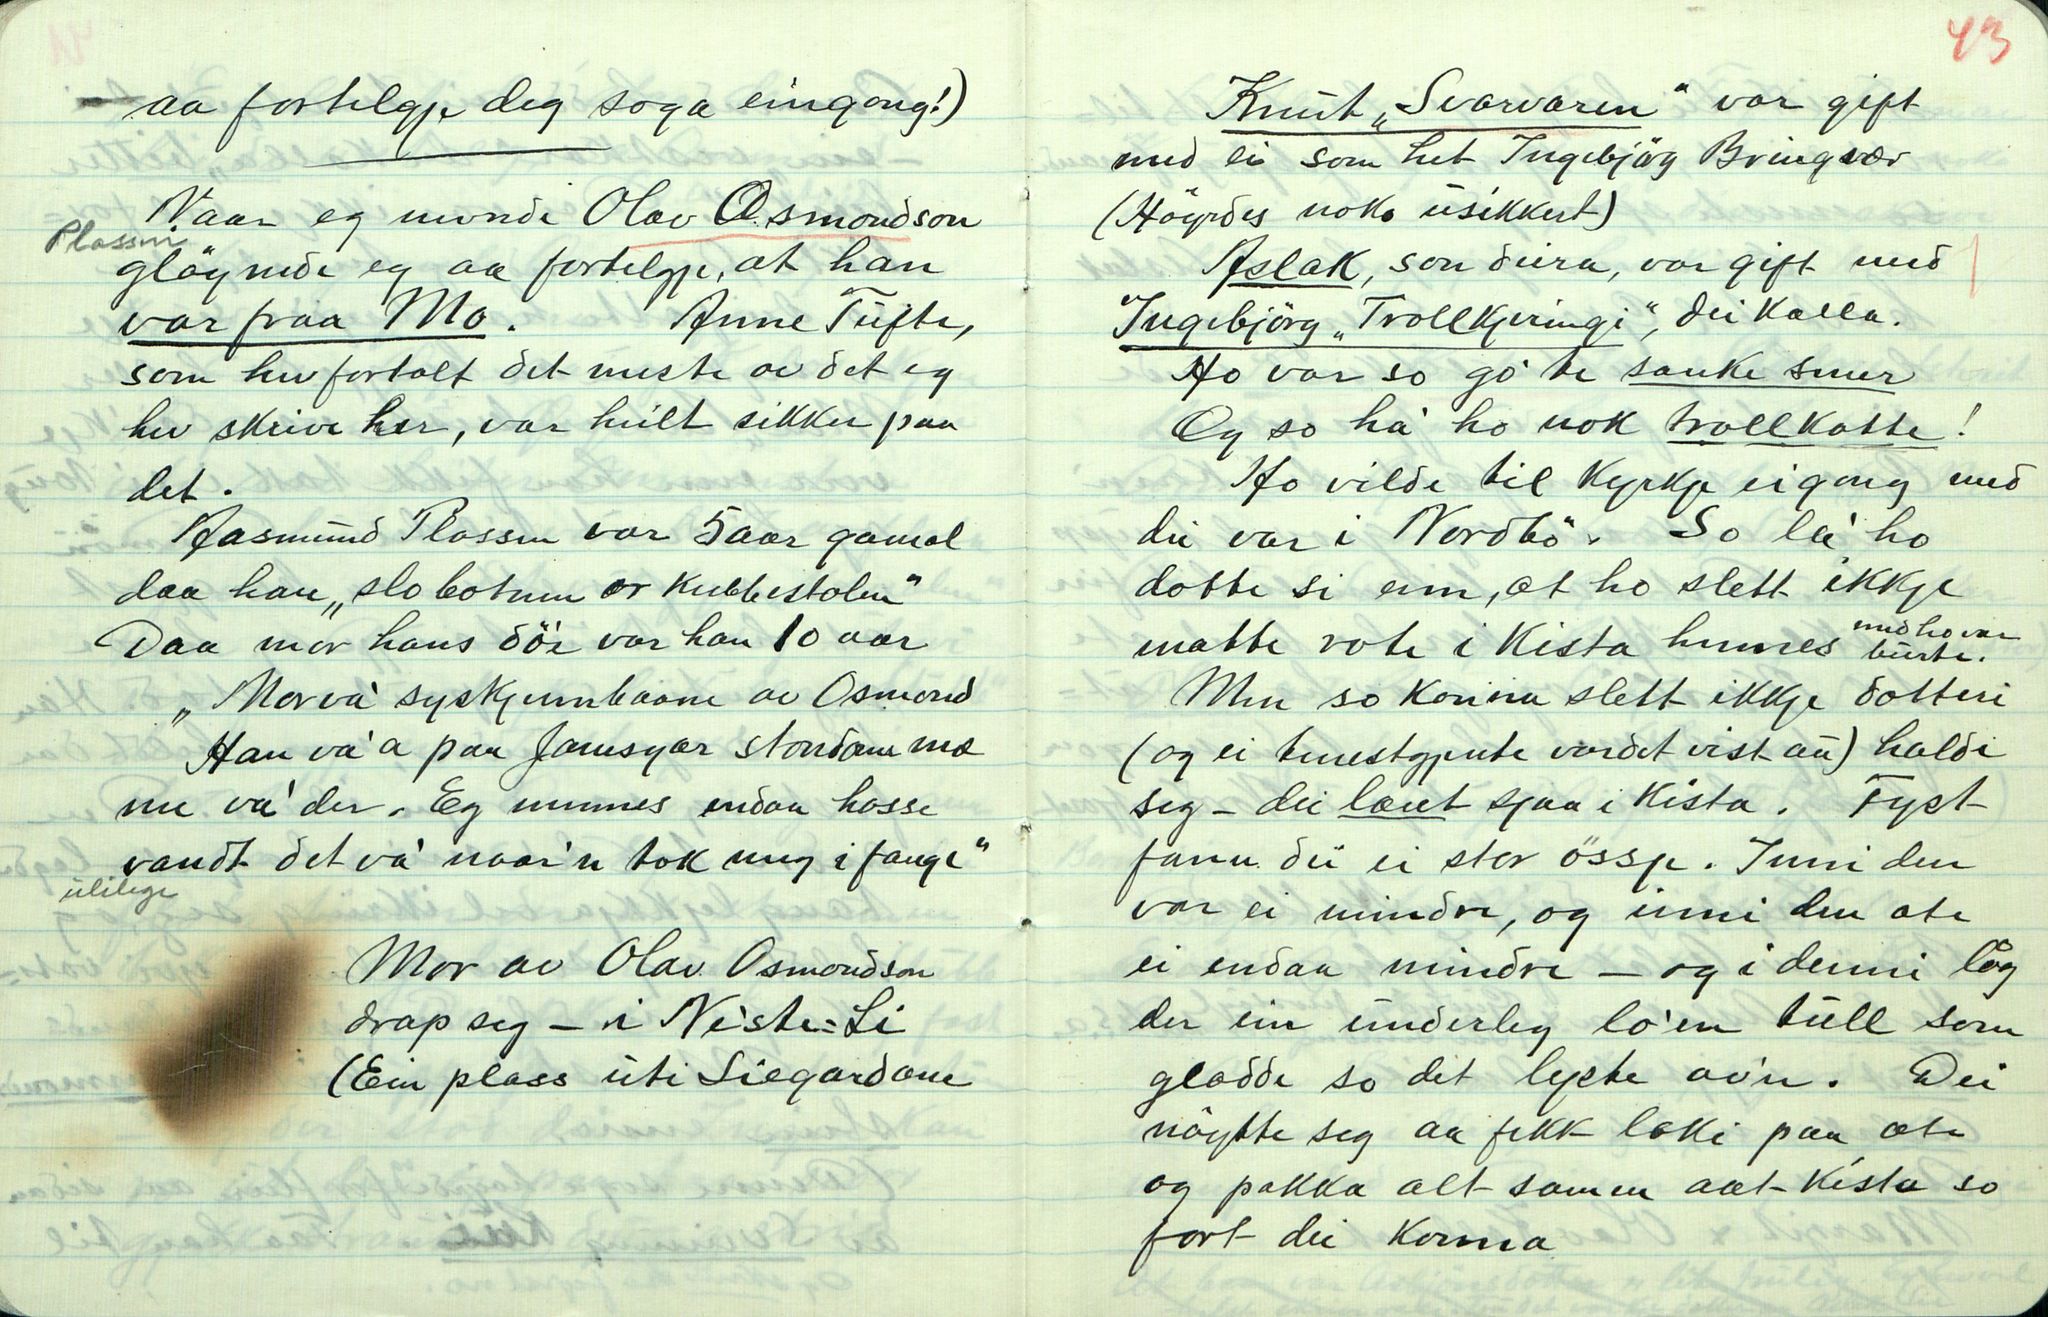 aa fortelgje deg soga eingong!)
Naar eg nemnde Olav Osmondson
Plassen
gløymde eg aa fortelgje, at han
var fraa Mo. Anne Tufte,
som hev fortalt det meste av det eg
hev skrive her, var heilt sikker paa
det.
Aasmund Plassen var 5 aar gamal
daa han „slo botnen or kubbestolen"
Daa mor hans döe var han 10 aar
„Mor va' syskjennbaane av Osmond
Han va' a paa Jamsgar stondom mæ
me va' der. Eg minnes endaa hosse
vandt det va' naar'n tok meg i fange"
ulilege
Mor av Olav Osmondson
drap seg – i Neste-Li
(Ein plass uti Liegardane
43
Knut „Svarvaren" var gift
med ei som het Ingebjörg Bringsvær
(Höyrdes noko usikkert)
Aslak, son deira, var gift med
Ingebjörg „Trollkjeringi", dei kalla.
Ho var so go' te sanke smer
Og so ha' ho nok trollkatte!
Ho vilde til kyrkje eigong med
dei var i Nordbö. So la' ho
dotte si enn, at ho slett ikkje
maatte rote i kista hennes med ho var
burte.
Men so konna slett ikkje dotteri
(og ei tenestgjente vardet vist au) haldi
seg – dei læut sjaa i kista. Fyst
fann dei ei stor össje. Inni den
var ei mindre, og inni den ate
ei endaa mindre – og i denni låg
der ein underleg lo'en tull som
glodde so det lyste av'n. Dei
nöytte seg aa fekk loki paa ate
og pakka alt samen aat kista so
fort dei konna